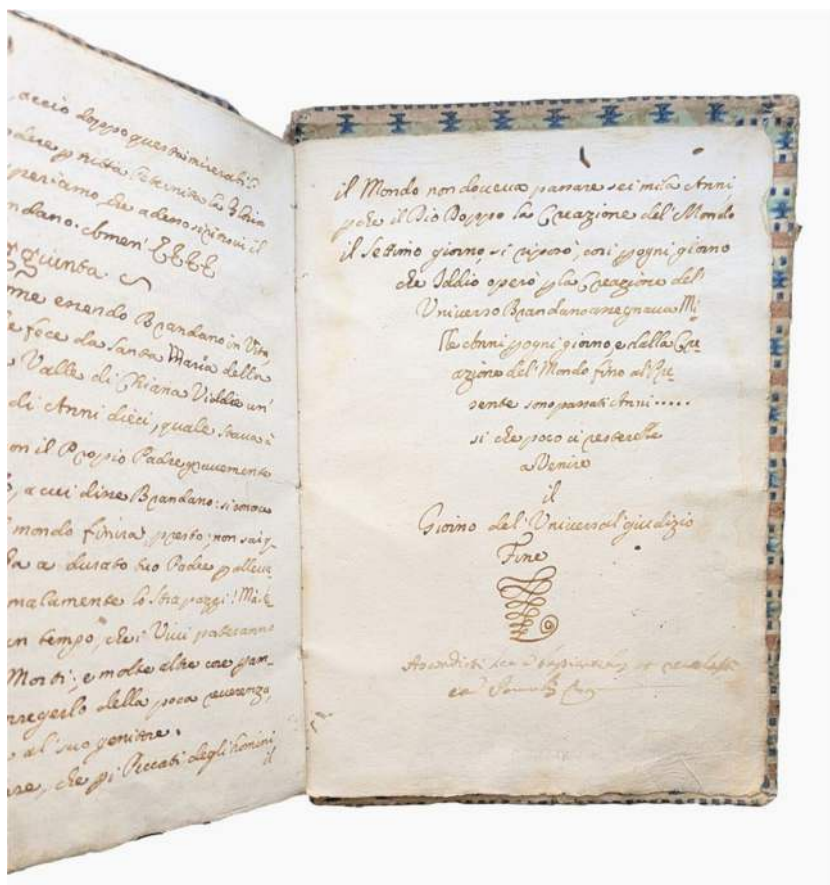 acciò doppo questa miserabil:
godere p tutta l'eternità la Gloria
speriamo, che adesso si trovi il
Brandano. Amen
ggiunta.
me essendo Brandano in Vita,
e fece da Santa Maria della
Valle di Chiana Vidde un'
di Anni dieci, quale stava à
on il Propio Padre gravemente
, a cui disse Brandano: si conosce
mondo finirà presto; non sai q.
la a durato tuo Padre p alleva
malamente lo strapazzi! Mà è
un tempo, che i Vivi pateranno
Morti; e molte altre cose p am-
rregerlo della poca reverenza,
al' suo genitore.
re, che p i Peccati degli homini
il
il Mondo non doveva passare sei mila Anni
p che il Dio Doppo la Creazione del' Mondo
il Settimo giorno, si riposò, così p ogni giorno
che Iddio operò p la Creazione del'
Universo Brandano assegnava Mi=
lle Anni p ogni giorno, e dalla Cre
azione del' Mondo fino al Pre=
sente sono passati Anni.....
si che poco ci resterebbe
a Venire
il
Giorno del' Universal' giudizio
Fine